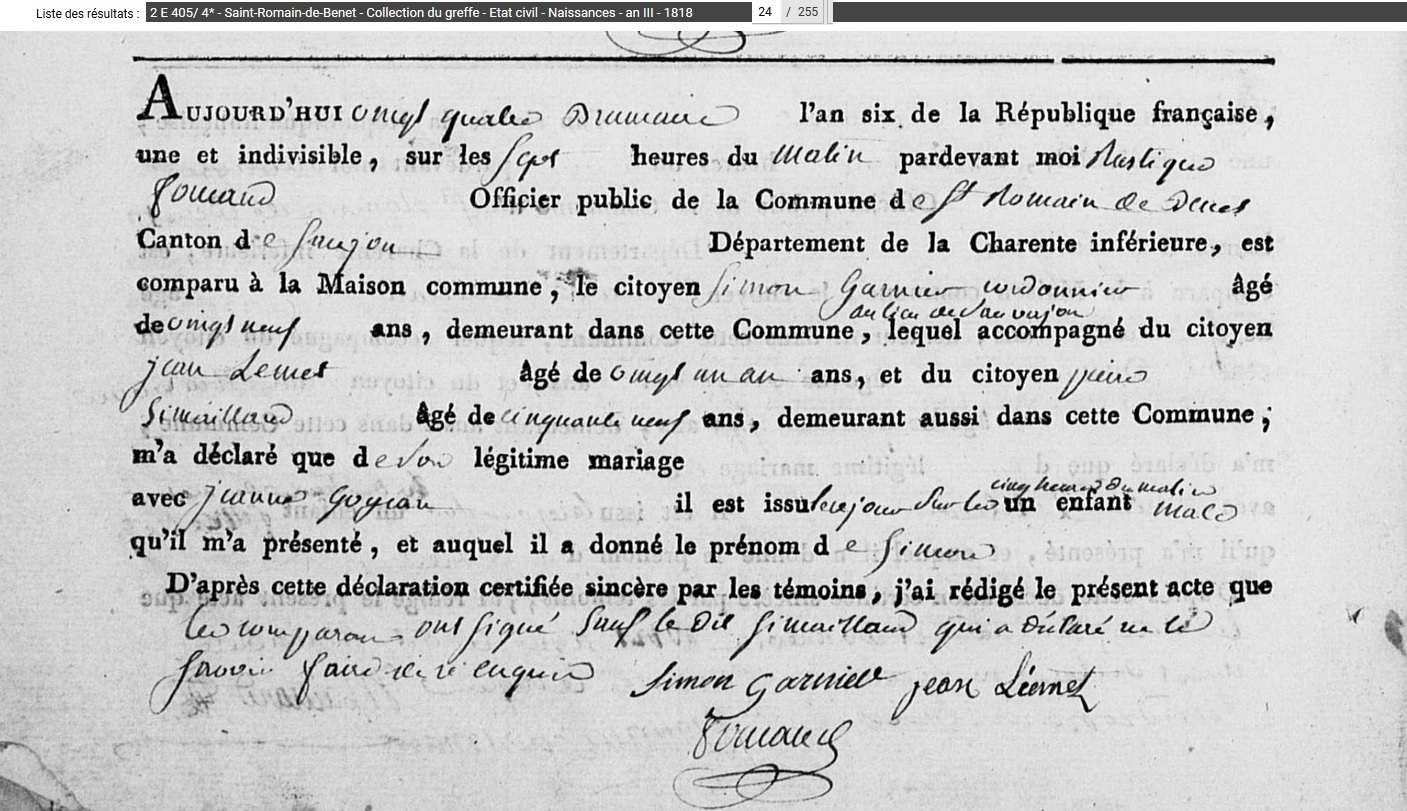 Liste des résultats : 2 E 405/ 4* - Saint-Romain-de-Benet - Collection du greffe - Etat civil - Naissances - an III - 1818 24 / 255
AUJOURD'HUI vingt quatre Brumaire l'an six de la République française,
une et indivisible, sur les sept heures du matin pardevant moi Rustique
Officier public de la Commune de St Romain de Benet
Canton de Saujon Département de la Charente inférieure, est
comparu à la Maison commune, le citoyen Simon Garnier cordonnier âgé
au lieu de
de vingt neuf ans, demeurant dans cette Commune, lequel accompagné du citoyen
jean âgé de vingt un an ans, et du citoyen pierre
Simaillaud âgé de cinquante neuf ans, demeurant aussi dans cette Commune;
m'a déclaré que de son légitime mariage
cinq heures du matin
avec jeanne il est issu ce jour sur les un enfant male
qu'il m'a présenté, et auquel il a donné le prénom de Simon
D'après cette déclaration certifiée sincère par les témoins, j'ai rédigé le présent acte que
les comparans ont signé sauf le dit Simaillaud qui a déclaré ne le
savoir faire de ce enquis Simon Garnier jean